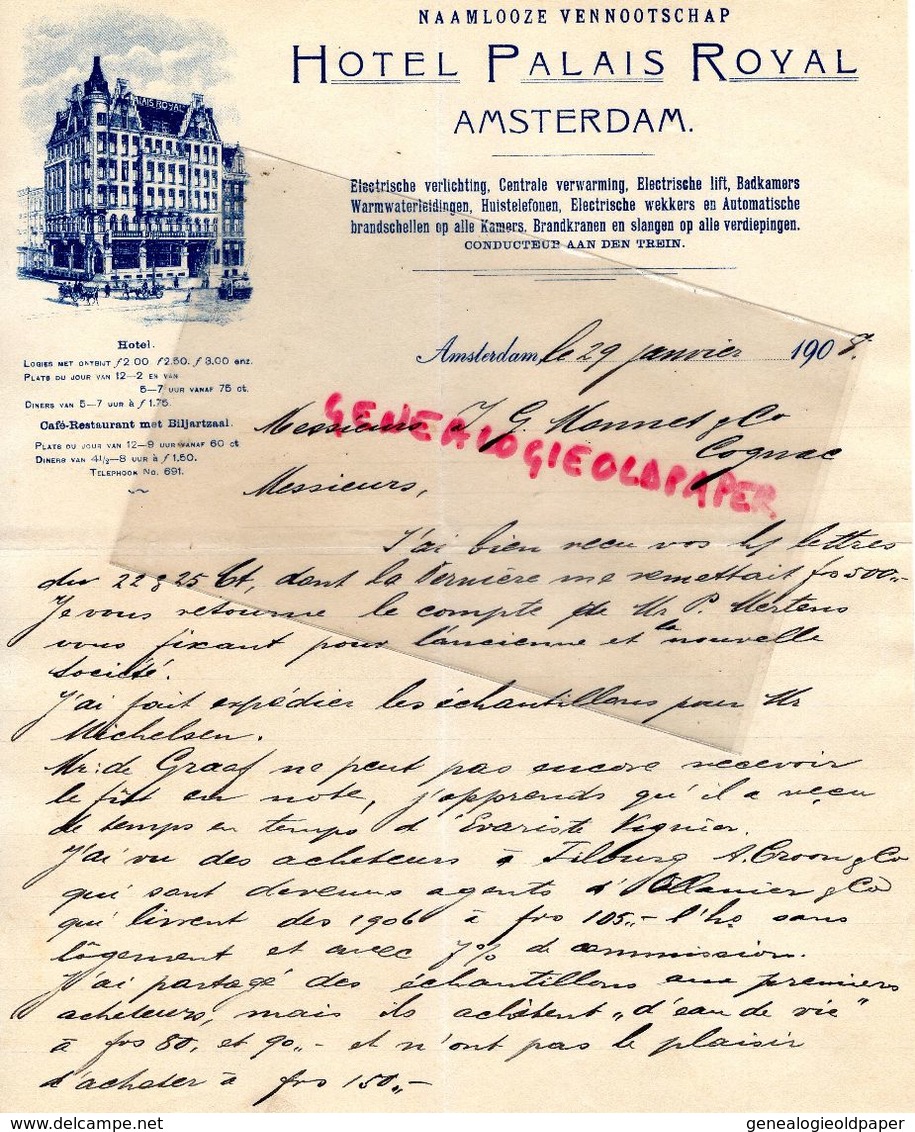 NAAMLOOZE VENNOOTSCHAP
HOTEL PALAIS ROYAL
AMSTERDAM.
PALAIS ROYAL
Electrische verlichting, Centrale verwarming, Electrische lift, Badkamers
Warmwaterleidingen, Huistelefonen, Electrische wekkers en Automatische
brandschellen op alle Kamers. Brandkranen en slangen op alle verdiepingen.
CONDUCTEUR AAN DEN TREIN.
Hotel.
LOGIES MET ONTBIJT ƒ2.00 ƒ2.50. ƒ3.00 enz.
PLATS DU JOUR VAN 12—2 EN VAN
5—7 UUR VANAF 75 ct.
DINERS VAN 5—7 UUR à ƒ1.75.
Café-Restaurant met Biljartzaal.
PLATS DU JOUR VAN 12—9 UUR VANAF 60 ct
DINERS VAN 4½—8 UUR à ƒ1.50.
TELEPHOON No. 691.
Amsterdam, le 29 janvier 1908.
Messieurs J. G. Monnet & Co
Cognac
GENEALOGIEOLDPAPER
Messieurs,
J'ai bien recu vos lettres
du 22 & 25 Ct, dont la dernière me remettait frs 500.-
Je vous retourne le compte de Mr P. Mertens
vous fixant pour l'ancienne et la nouvelle
société.
J'ai fait expédier les échantillons pour Mr
Michelsen.
Mr: de Graaf ne peut pas encore recevoir
le fût en note, j'apprends qu'il a reçu
de temps en temps d'Evariste Vignier.
J'ai vu des acheteurs à Tilburg A. Croon & Co
qui sont devenus agents d' & Co
qui livrent des 1906 à frs 105.- l'ho sans
lôgement et avec 7% de commission.
J'ai partagé des échantillons aux premiers
acheteurs, mais ils achètent „d'eau de vie"
à frs 80, et 90.- et n'ont pas le plaisir
d'acheter à frs 150.-
delcampe.net
genealogieoldpaper